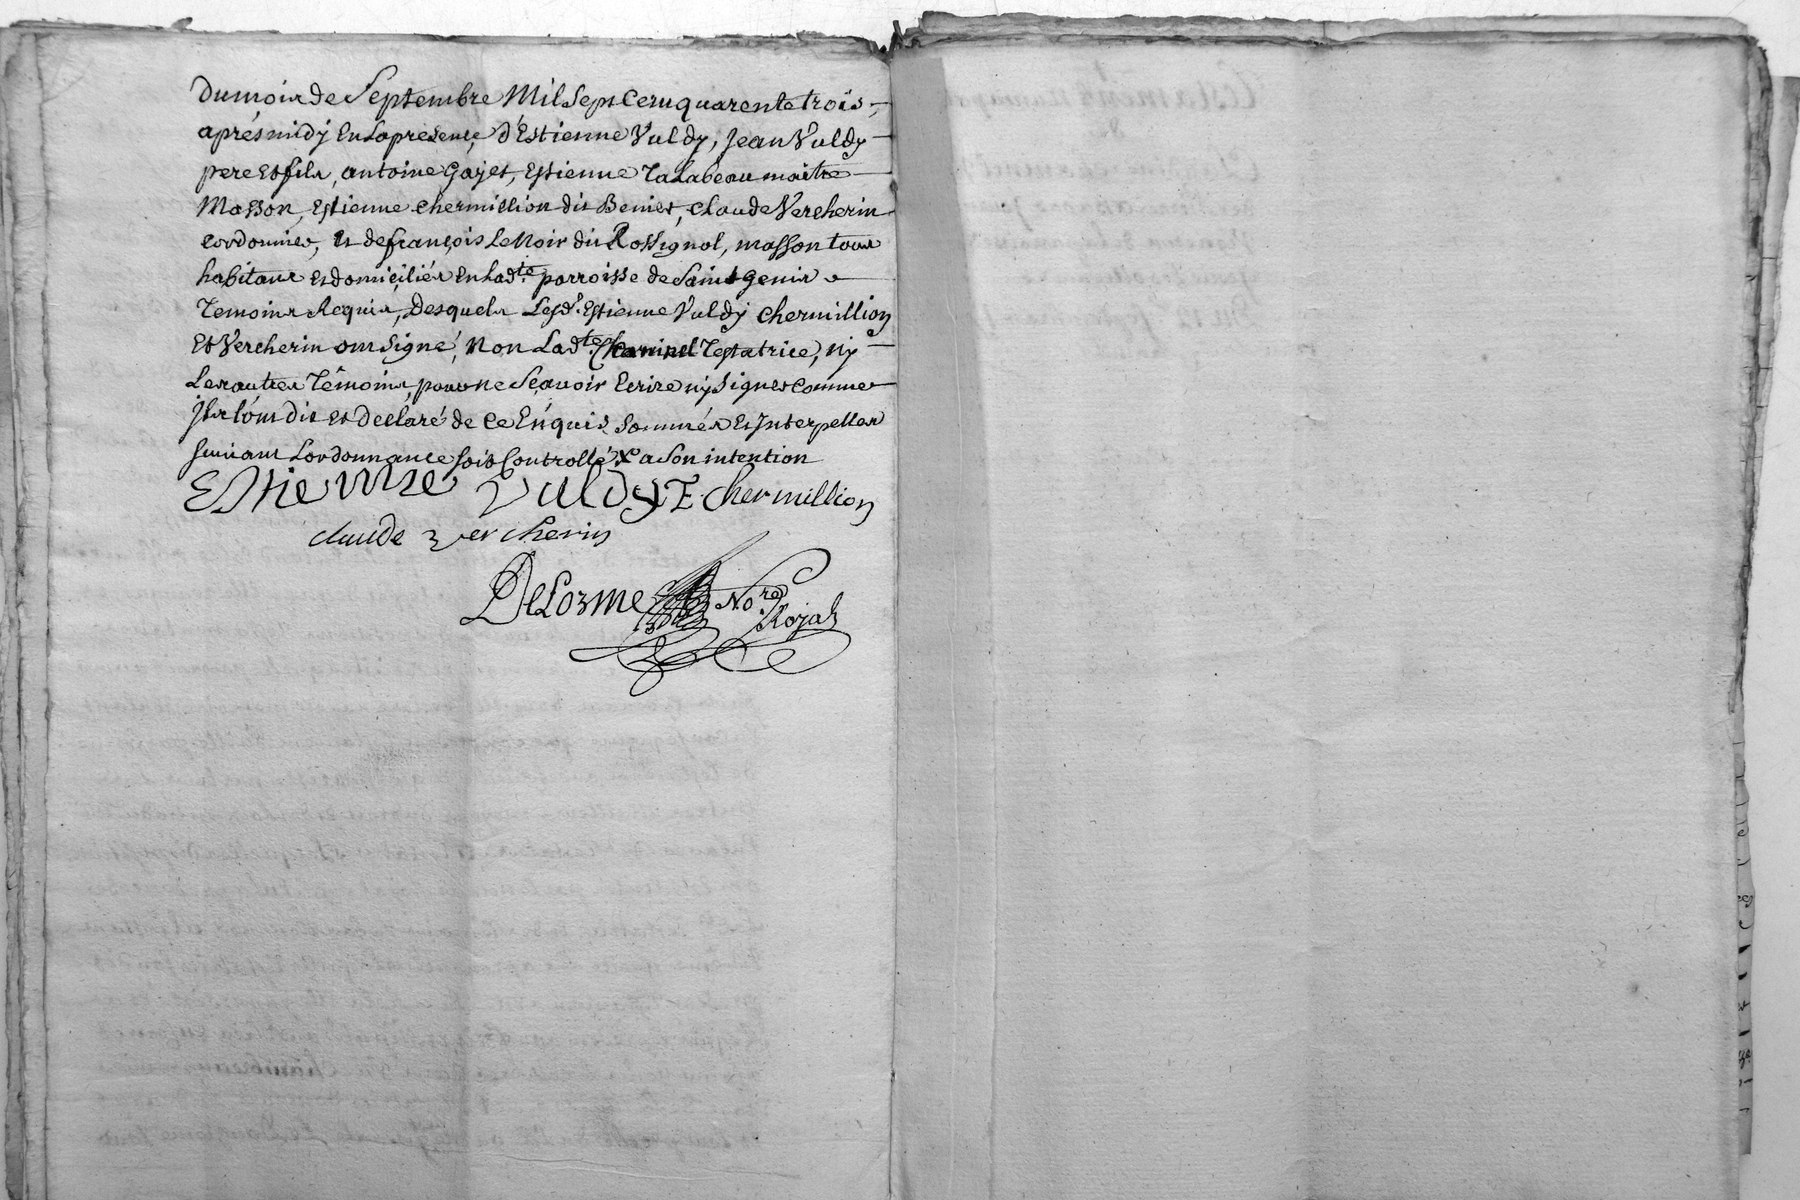 Du mois de Septembre Mil Sept Cent quarente trois,
aprés midy En La présence d'Estienne Vuldy, Jean Vuldy
pere et fils, antoine Gayet, Estienne Talabeau maitre
Masson, Estienne chermillion dit Beniet, Claude Vercherin
cordonnier, Et de françois Le Noir dit Rossignol, masson tous
habitans et domiciliés en Lad.te parroisse de Saint Genis
Temoins Requis, Desquels Lesd. Estienne Vuldy Chermillion
Et Vercherin ont Signé, Non Lad.te Testatrice, ny
Les autres Témoins, pour ne Sçavoir Ecrire ny Signer comme
jls l'ont dit et Déclaré de ce Enquis, Sommés Et Interpellés
Suivant Lordonnance soit Controllé a Son intention
Estienne Vuldy E. Chermillion
claude Vercherin
DeLorme No.re
Royal